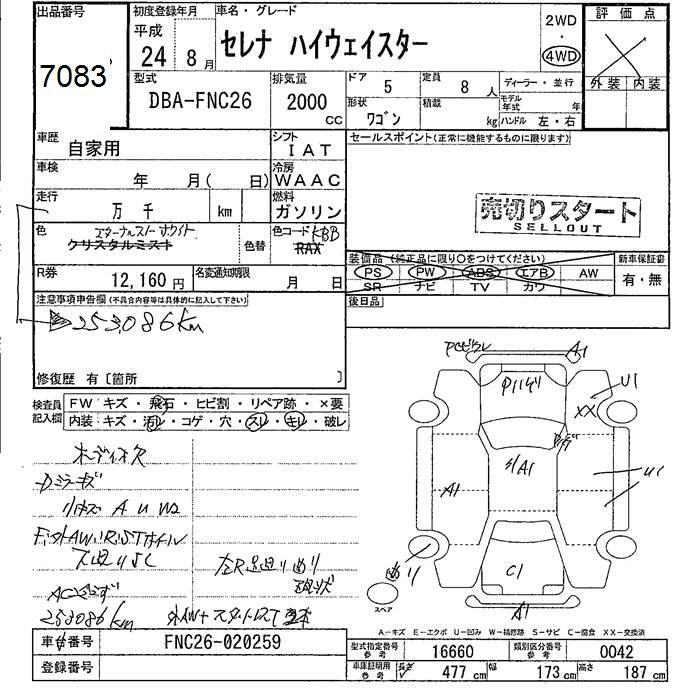 出品番号
7083
初度登録年月
平成
24 8月
車名・グレード
セレナ ハイウェイスター
2WD
・
4WD
評価点
外装 内装
型式
DBA-FNC26
排気量
2000 CC
ドア 5
定員 8人
ディーラー・並行
形状 ワゴン
積載 kg
モデル年式 年
ハンドル 左・右
車歴
自家用
シフト
IAT
車検
年 月( 日)
冷房
WAAC
走行
万 千 km
燃料
ガソリン
色
クリスタルミスト
色替
色コード KBB
RAX
R券
12,160円
名変通知期限
月 日
セールスポイント(正常に機能するものに限ります)
売切りスタート
SELLOUT
装備品(純正品に限り〇をつけてください)
新車保証書
PS PW ABS エアB AW
有・無
SR ナビ TV カワ
後日品
注意事項申告欄(不具合内容等は具体的に記入して下さい)
253,086km
修復歴 有〔箇所 〕
検査員
記入欄
FW キズ・飛石・ヒビ割・リペア跡・×要
内装:キズ・汚レ・コゲ・穴・スレ・キレ・破レ
A1
U1
XX
A1
A1
U1
C1
A1
スペア
AC
253086km
A-キズ E-エクボ U-凹み W-補修跡 S-サビ C-腐食 XX-交換済
車台番号
FNC26-020259
登録番号
型式指定番号
参考
16660
類別区分番号
参考
0042
車庫証明用
参考
長さ 477cm
幅 173cm
高さ 187cm